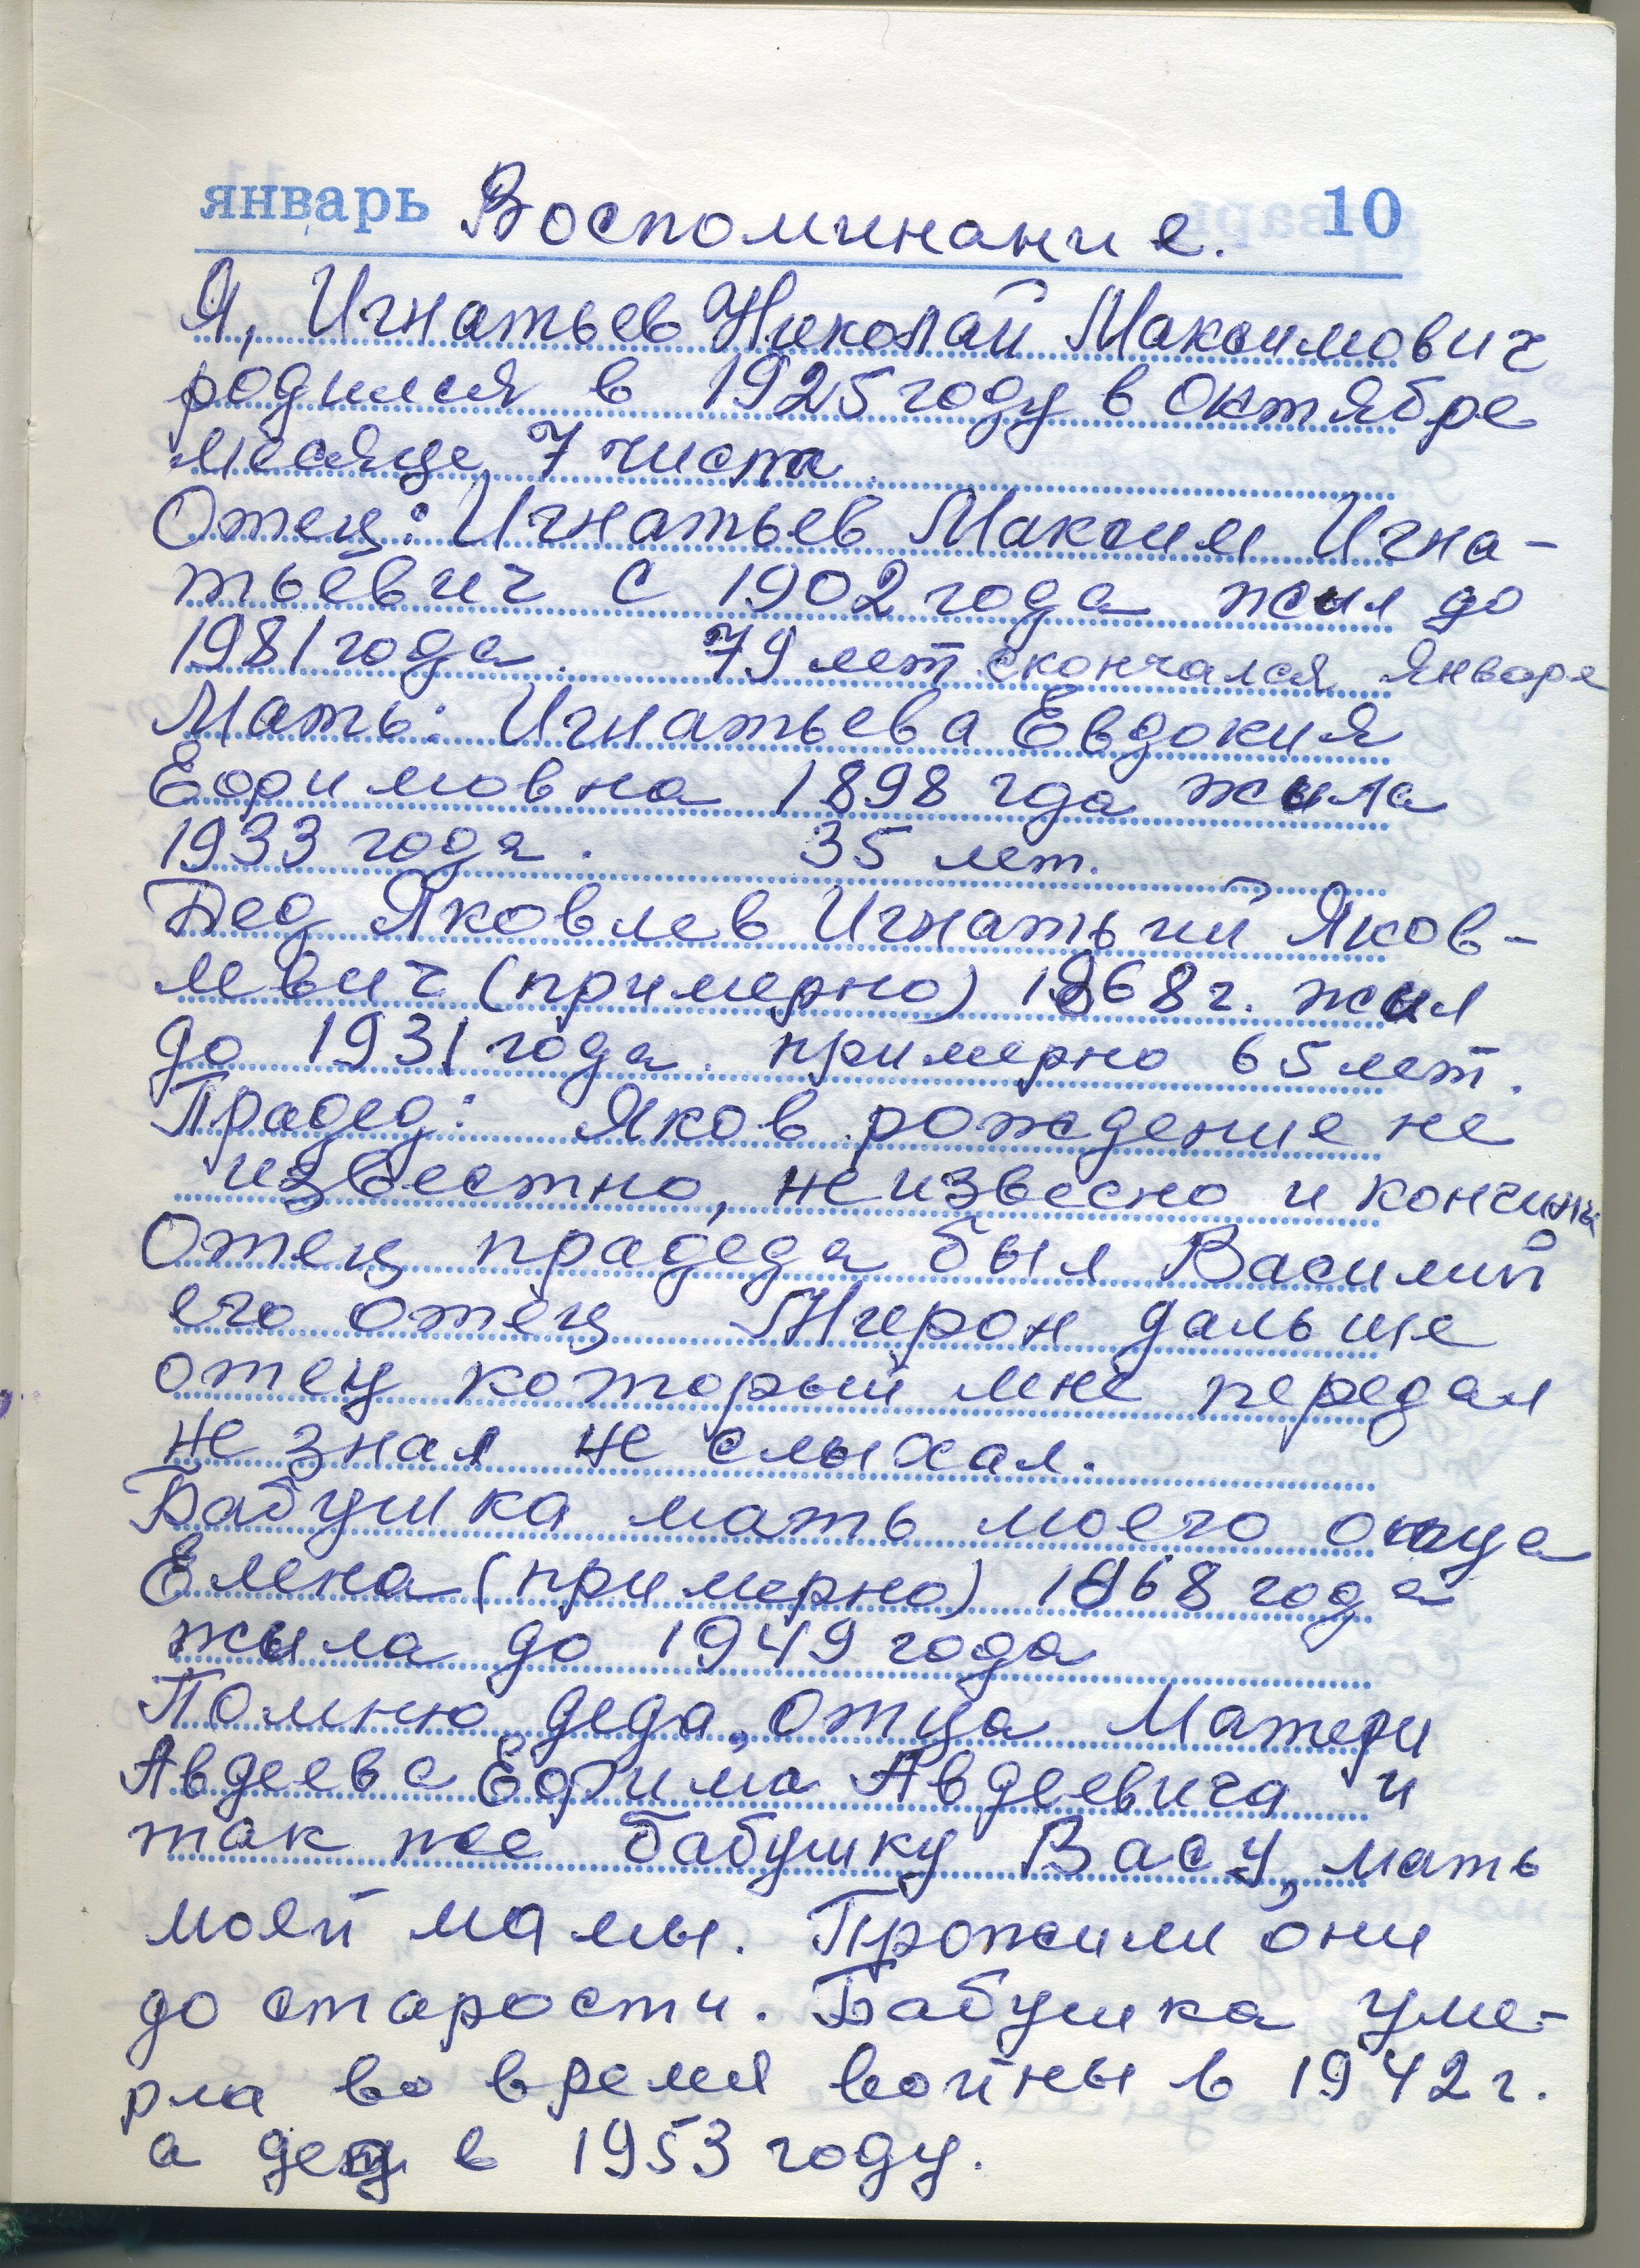 январь Воспоминание. 10
Я, Игнатьев Николай Максимович
родился в 1925 году в Октябре
месяце, 7 числа.
Отец: Игнатьев Максим Игна-
тьевич с 1902 года жил до
1981 года. 79 лет скончался Январе
Мать: Игнатьева Евдокия
Ефимовна 1898 гда жила
1933 года. 35 лет.
Дед Яковлев Игнатьий Яков-
левич (примерно) 1868 г. жил
до 1931 года. примерно 65 лет.
Прадед: Яков рождение не
известно, неизвесно и кончины
Отец прадеда был Василий
его отец Мирон дальше
отец который мне передал
не знал не слыхал.
Бабушка мать моего отца
Елена (примерно) 1868 года
жила до 1949 года
Помню деда, отца Матери
Авдеева Ефима Авдеевича и
так же бабушку Васу, мать
моей мамы. Прожили они
до старости. Бабушка уме-
рла во время войны в 1942 г.
а дед в 1953 году.